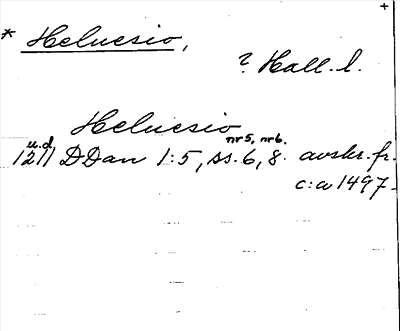 +
* Helnesio,
? Hall. l.
Helnesio
nr 5, nr 6.
u.d.
1211 DDan 1:5, ss. 6, 8. avskr. fr.
c:a 1497.